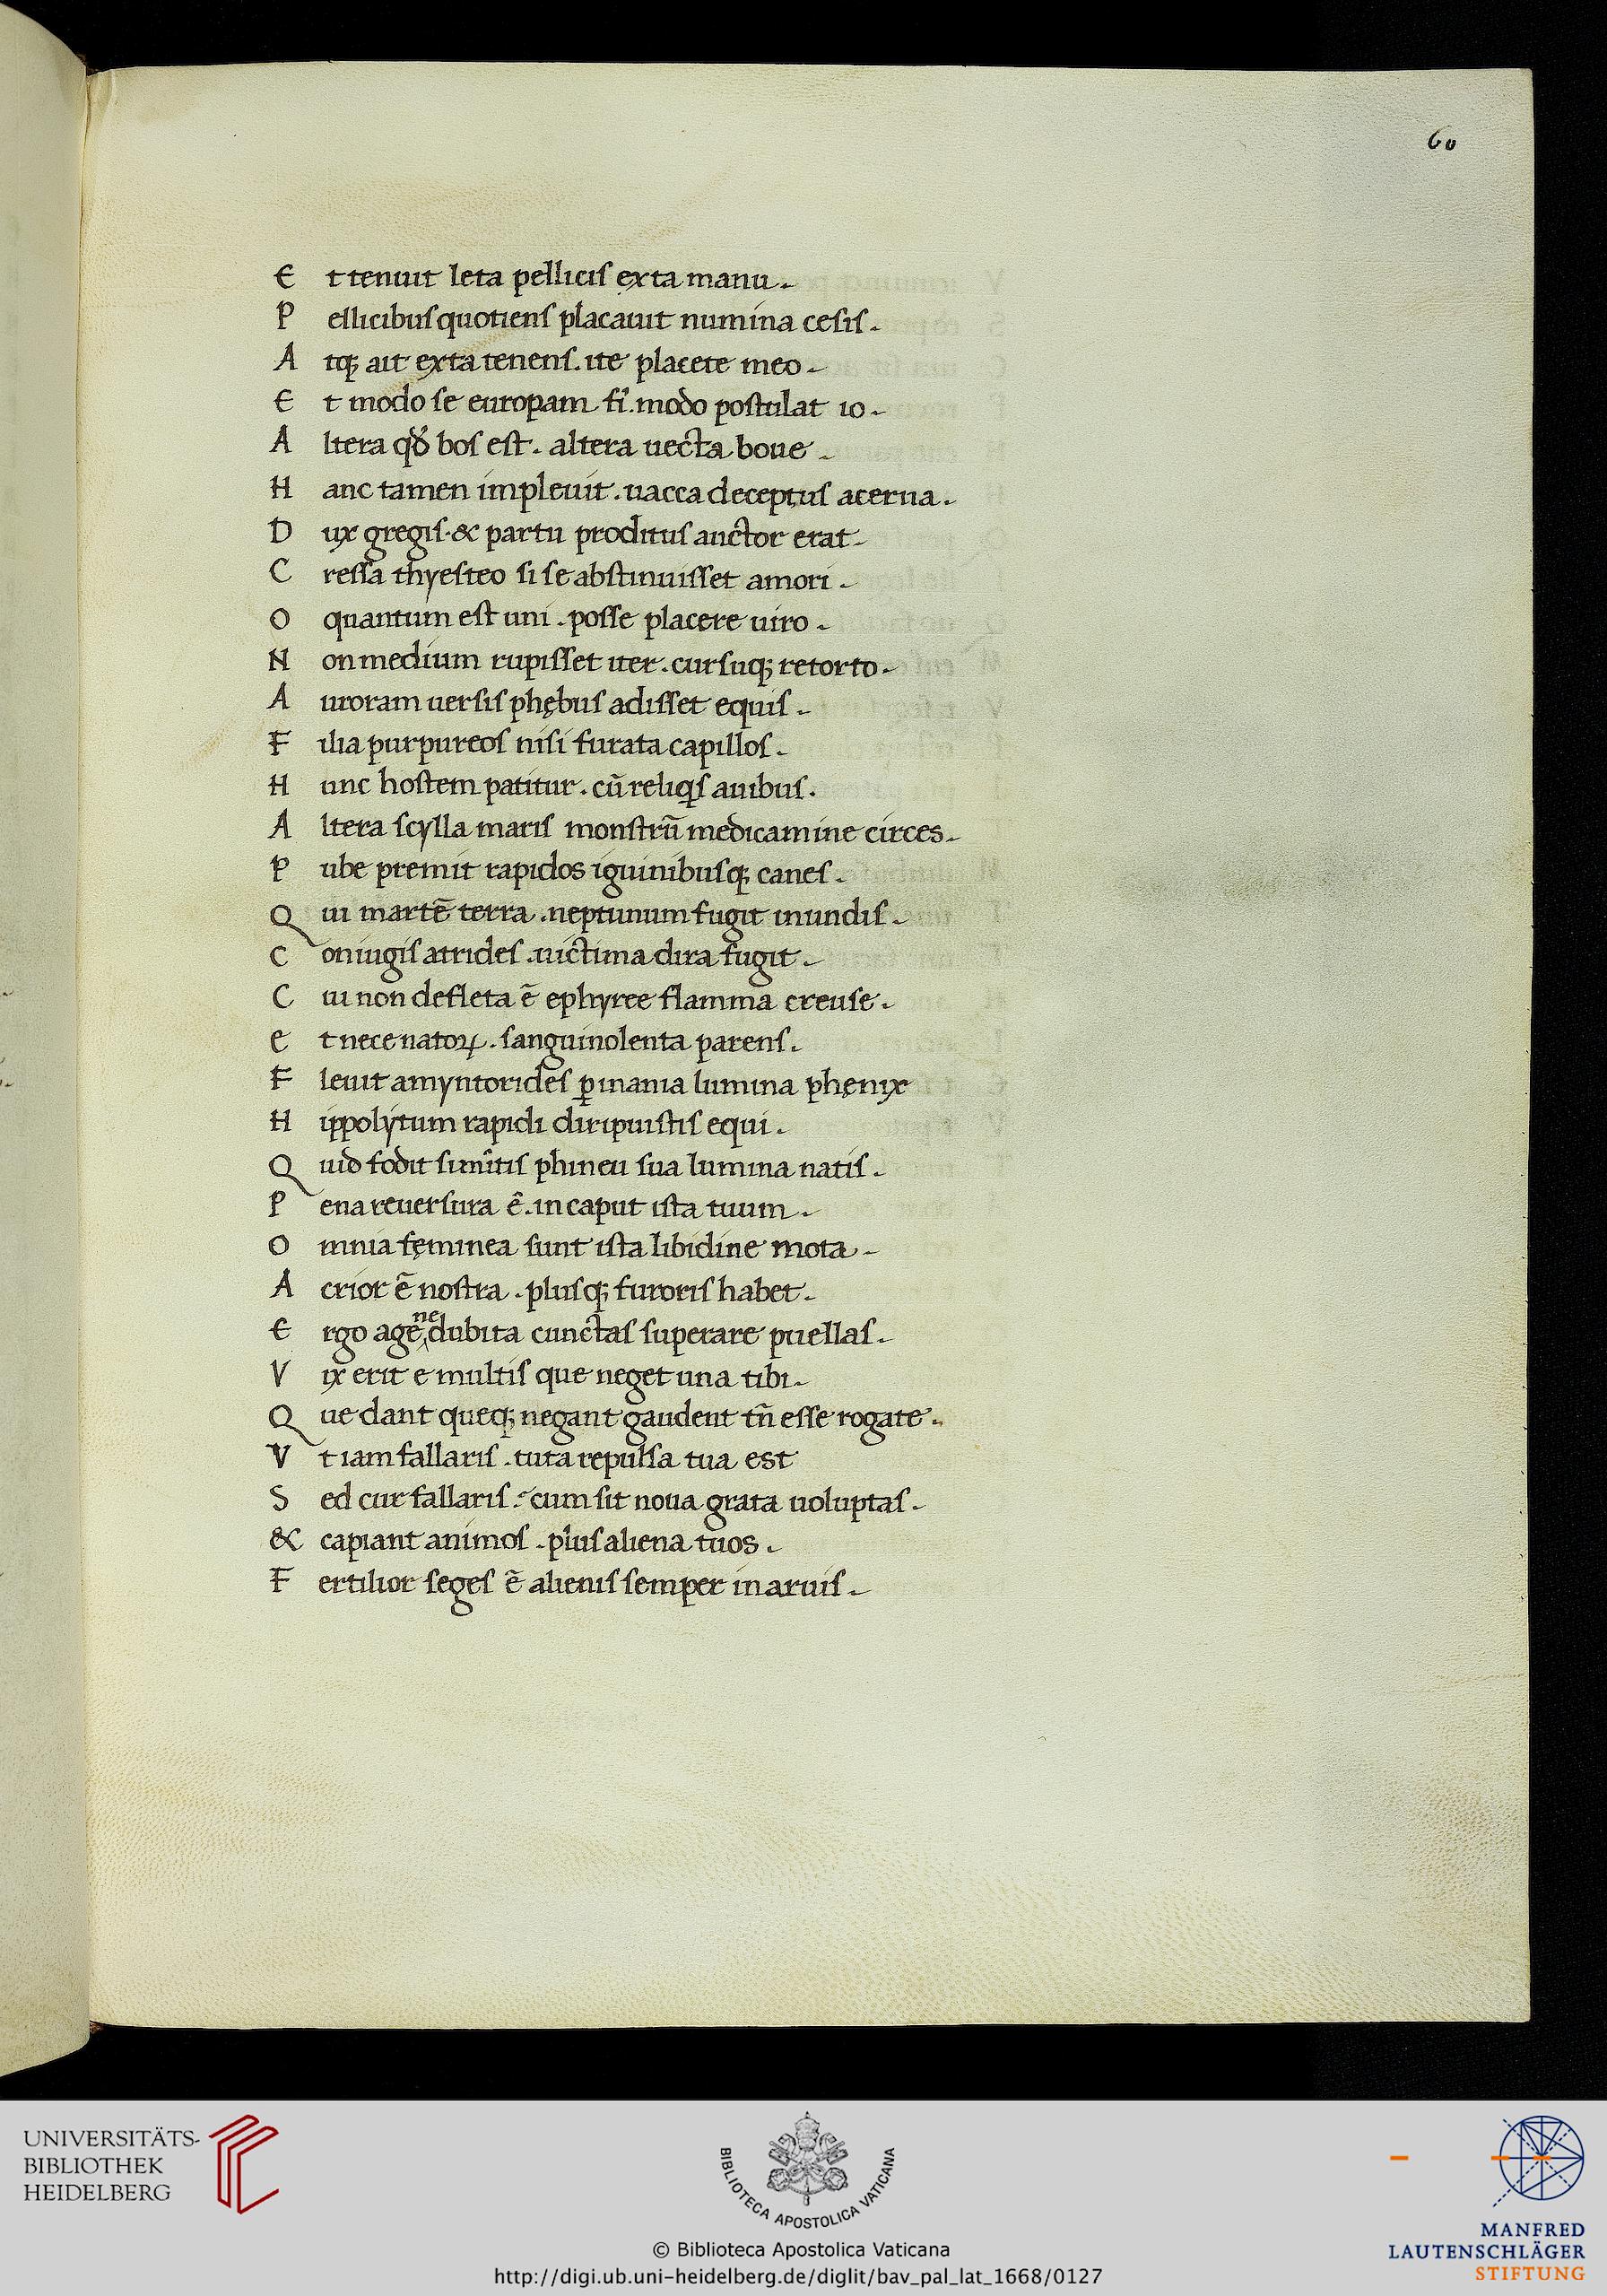 60
Et tenuit leta pellicis exta manu.
Pellicibus quotiens placauit numina cesis.
Atq; ait exta tenens. ite placete meo.
Et modo se europam fi͛. modo postulat io.
Altera qđ bos est. altera uecta boue.
Hanc tamen impleuit. uacca deceptus acerna.
Dux gregis. & partu proditus auctor erat.
Cressa thyesteo si se abstinuisset amori.
O quantum est uni. posse placere uiro.
Non medium rupisset iter. cursuq; retorto.
Auroram uersis phębus adisset equis.
Filia purpureos nisi furata capillos.
Hunc hostem patitur. cū reliqis auibus.
Altera scylla maris monstrū medicamine circes.
Pube premit rapidos iguinibusq; canes.
Qui martē terra. neptunum fugit inundis.
Coniugis atrides. uictima dira fugit.
Cui non defleta ē ephyree flamma creuse.
et nece natoꝝ. sanguinolenta parens.
Fleuit amyntorides ꝑ inania lumina phęnix
Hippolytum rapidi diripuistis equi.
Quid fodit īmitis phineu sua lumina natis.
Pena reuersura ē. in caput ista tuum.
Omnia fęminea sunt ista libidine mota.
Acrior ē nostra. plusq; furoris habet.
Ergo age ne dubita cunctas superare puellas.
Vix erit e multis que neget una tibi.
Que dant queq; negant gaudent tn̄ esse rogate.
Vt iam fallaris. tuta repulsa tua est
Sed cur fallaris. cum sit noua grata uoluptas.
& capiant animos. plus aliena tuos.
Fertilior seges ē alienis semper in aruis.
UNIVERSITÄTS-
BIBLIOTHEK
HEIDELBERG
BIBLIOTECA APOSTOLICA VATICANA
© Biblioteca Apostolica Vaticana
http://digi.ub.uni-heidelberg.de/diglit/bav_pal_lat_1668/0127
MANFRED
LAUTENSCHLÄGER
STIFTUNG